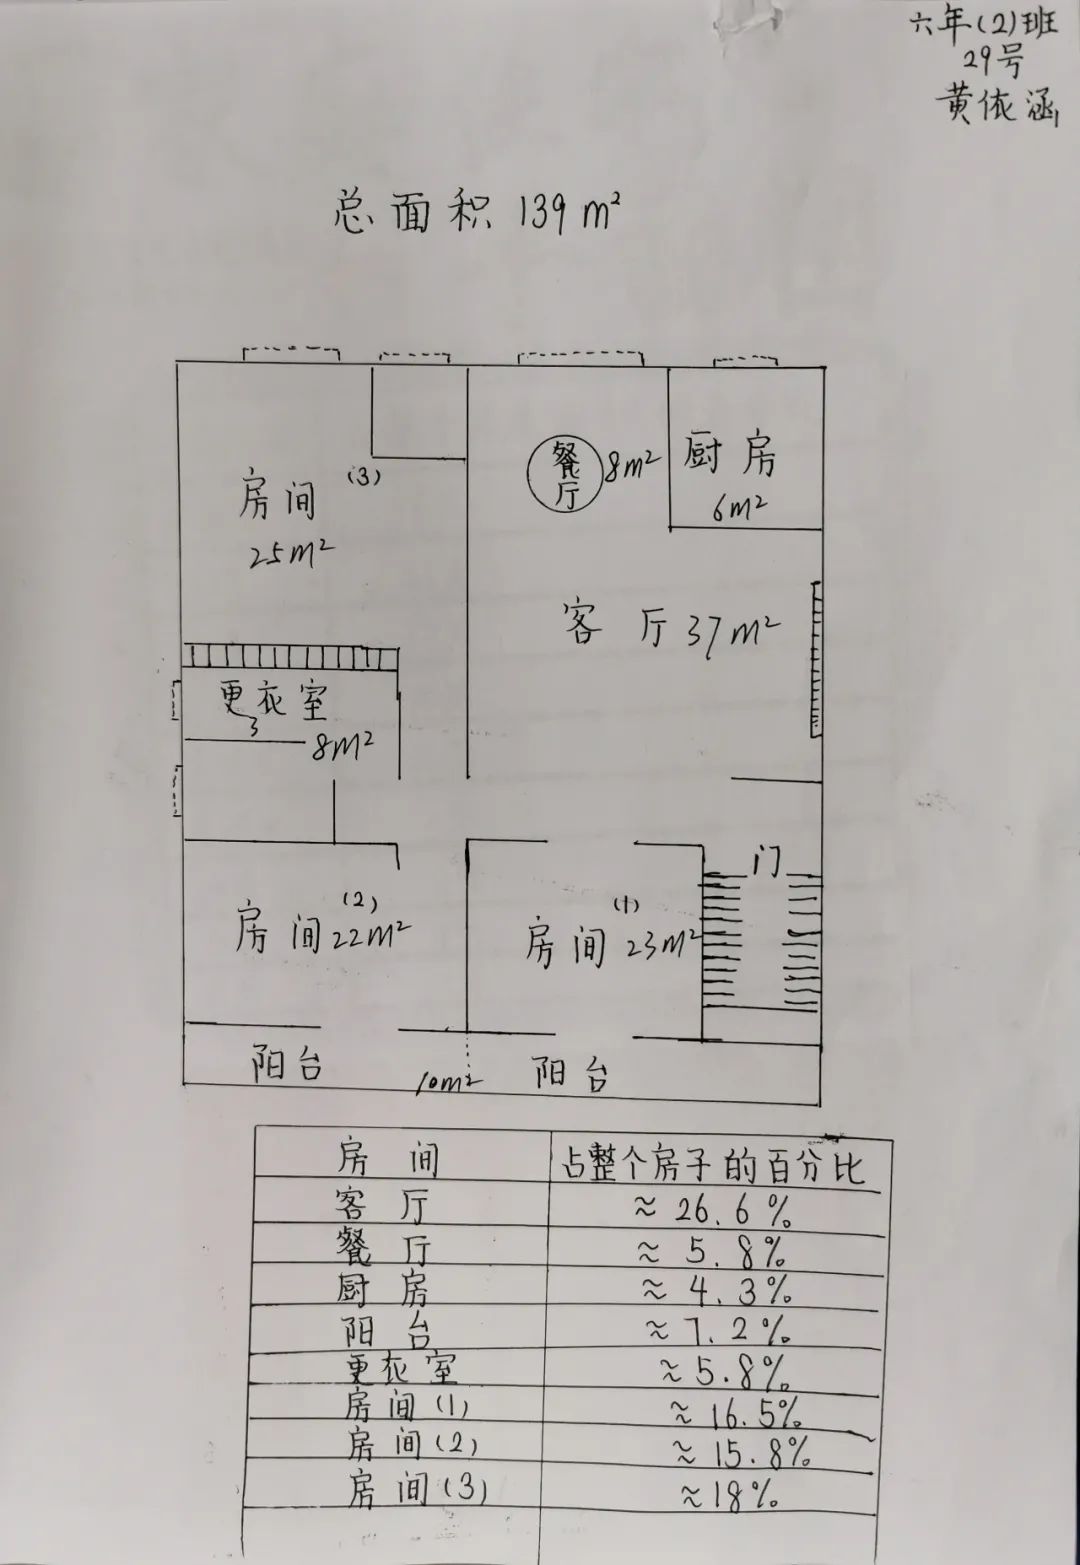 六年(2)班
29号
黄依涵
总面积 139 m²
餐厅 8m²
厨房
6m²
(3)
房间
25m²
客厅 37m²
更衣室
3
8m²
门
(2)
房间 22m²
(1)
房间 23m²
阳台
10m²
阳台
房间 占整个房子的百分比
客厅 ≈ 26.6%
餐厅 ≈ 5.8%
厨房 ≈ 4.3%
阳台 ≈ 7.2%
更衣室 ≈ 5.8%
房间(1) ≈ 16.5%
房间(2) ≈ 15.8%
房间(3) ≈ 18%